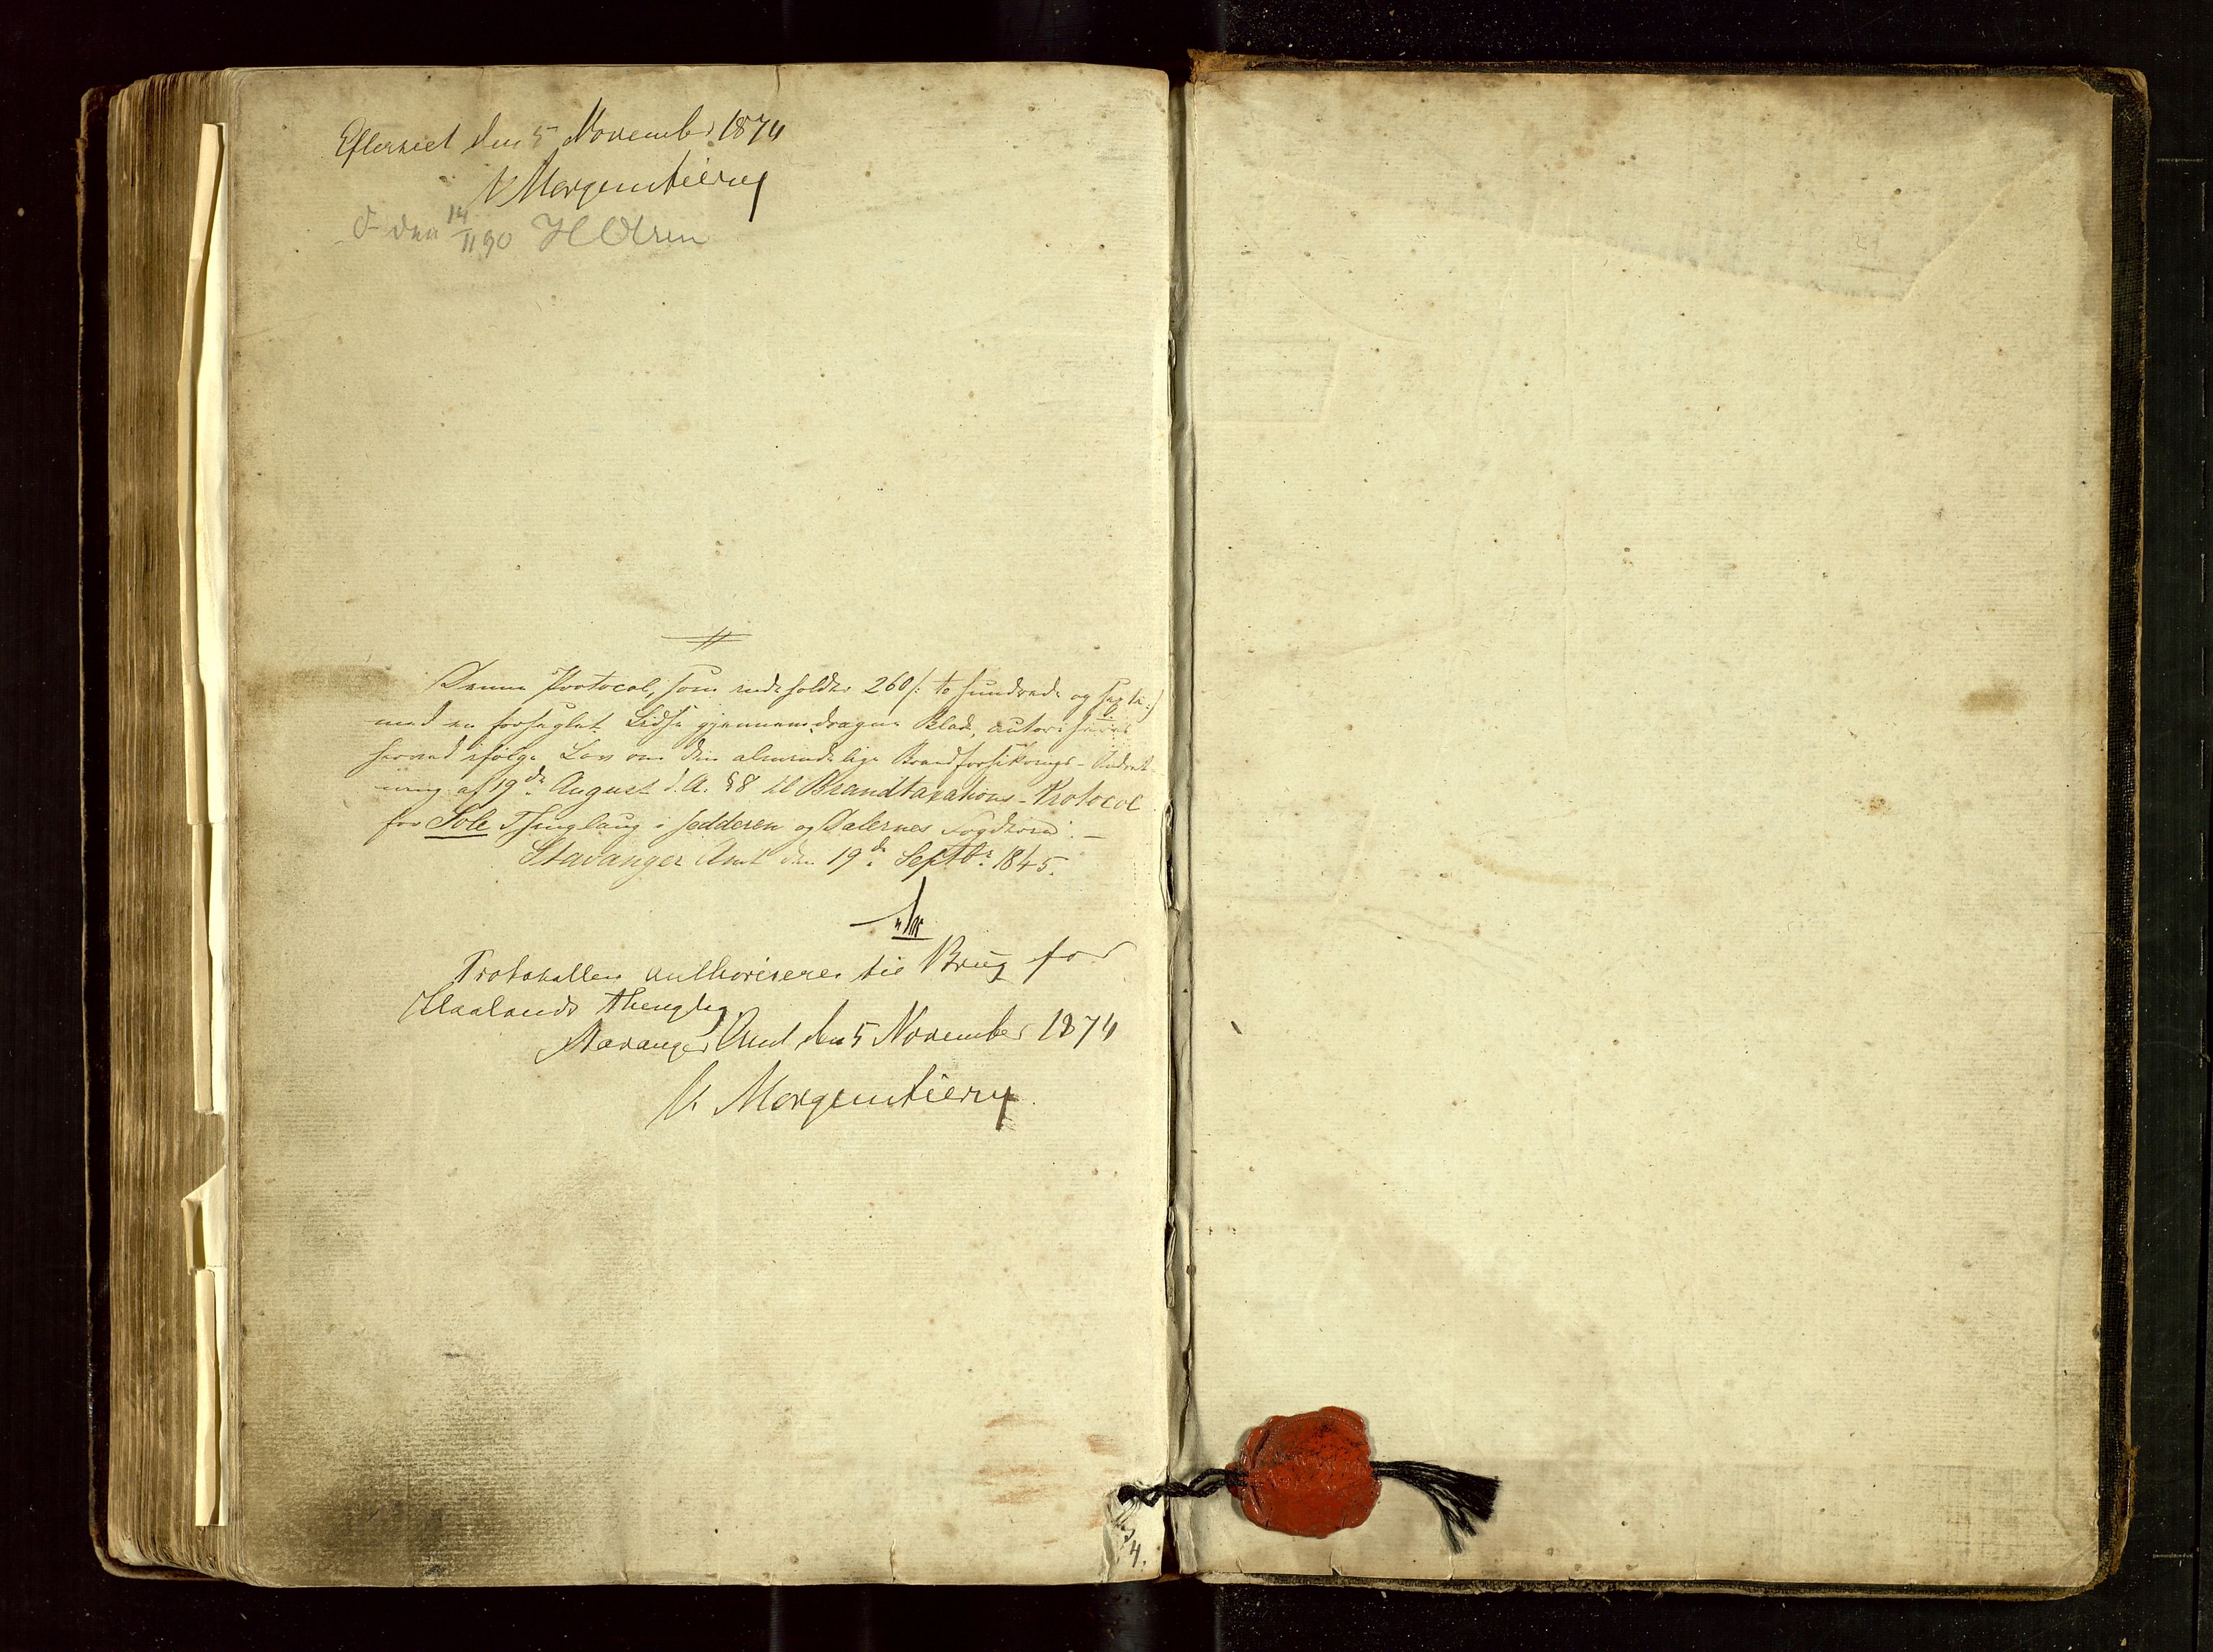 Efterseet den 5 November 1874
V Morgenstierne
den 14/11 90 H Olsen
Denne Protocol, som indeholder 260 /: to hundrede og sexti :/
med en forseglet Lidse gjennemdragne Blade, autoriseres
herved ifølge Lov om den almindelige Brandforsikrings-Indret
ning af 19de August d. A. § 8 til Brandtaxations-Protocol
for Sole Thinglaug i Jedderen og Dalernes Fogderi. –
Stavanger Amt den 19de Septbr 1845.
Protokollen authoriseres til Brug for
Haalands Thinglag
Stavanger Amt den 5 November 1874
V. Morgenstierne
4.